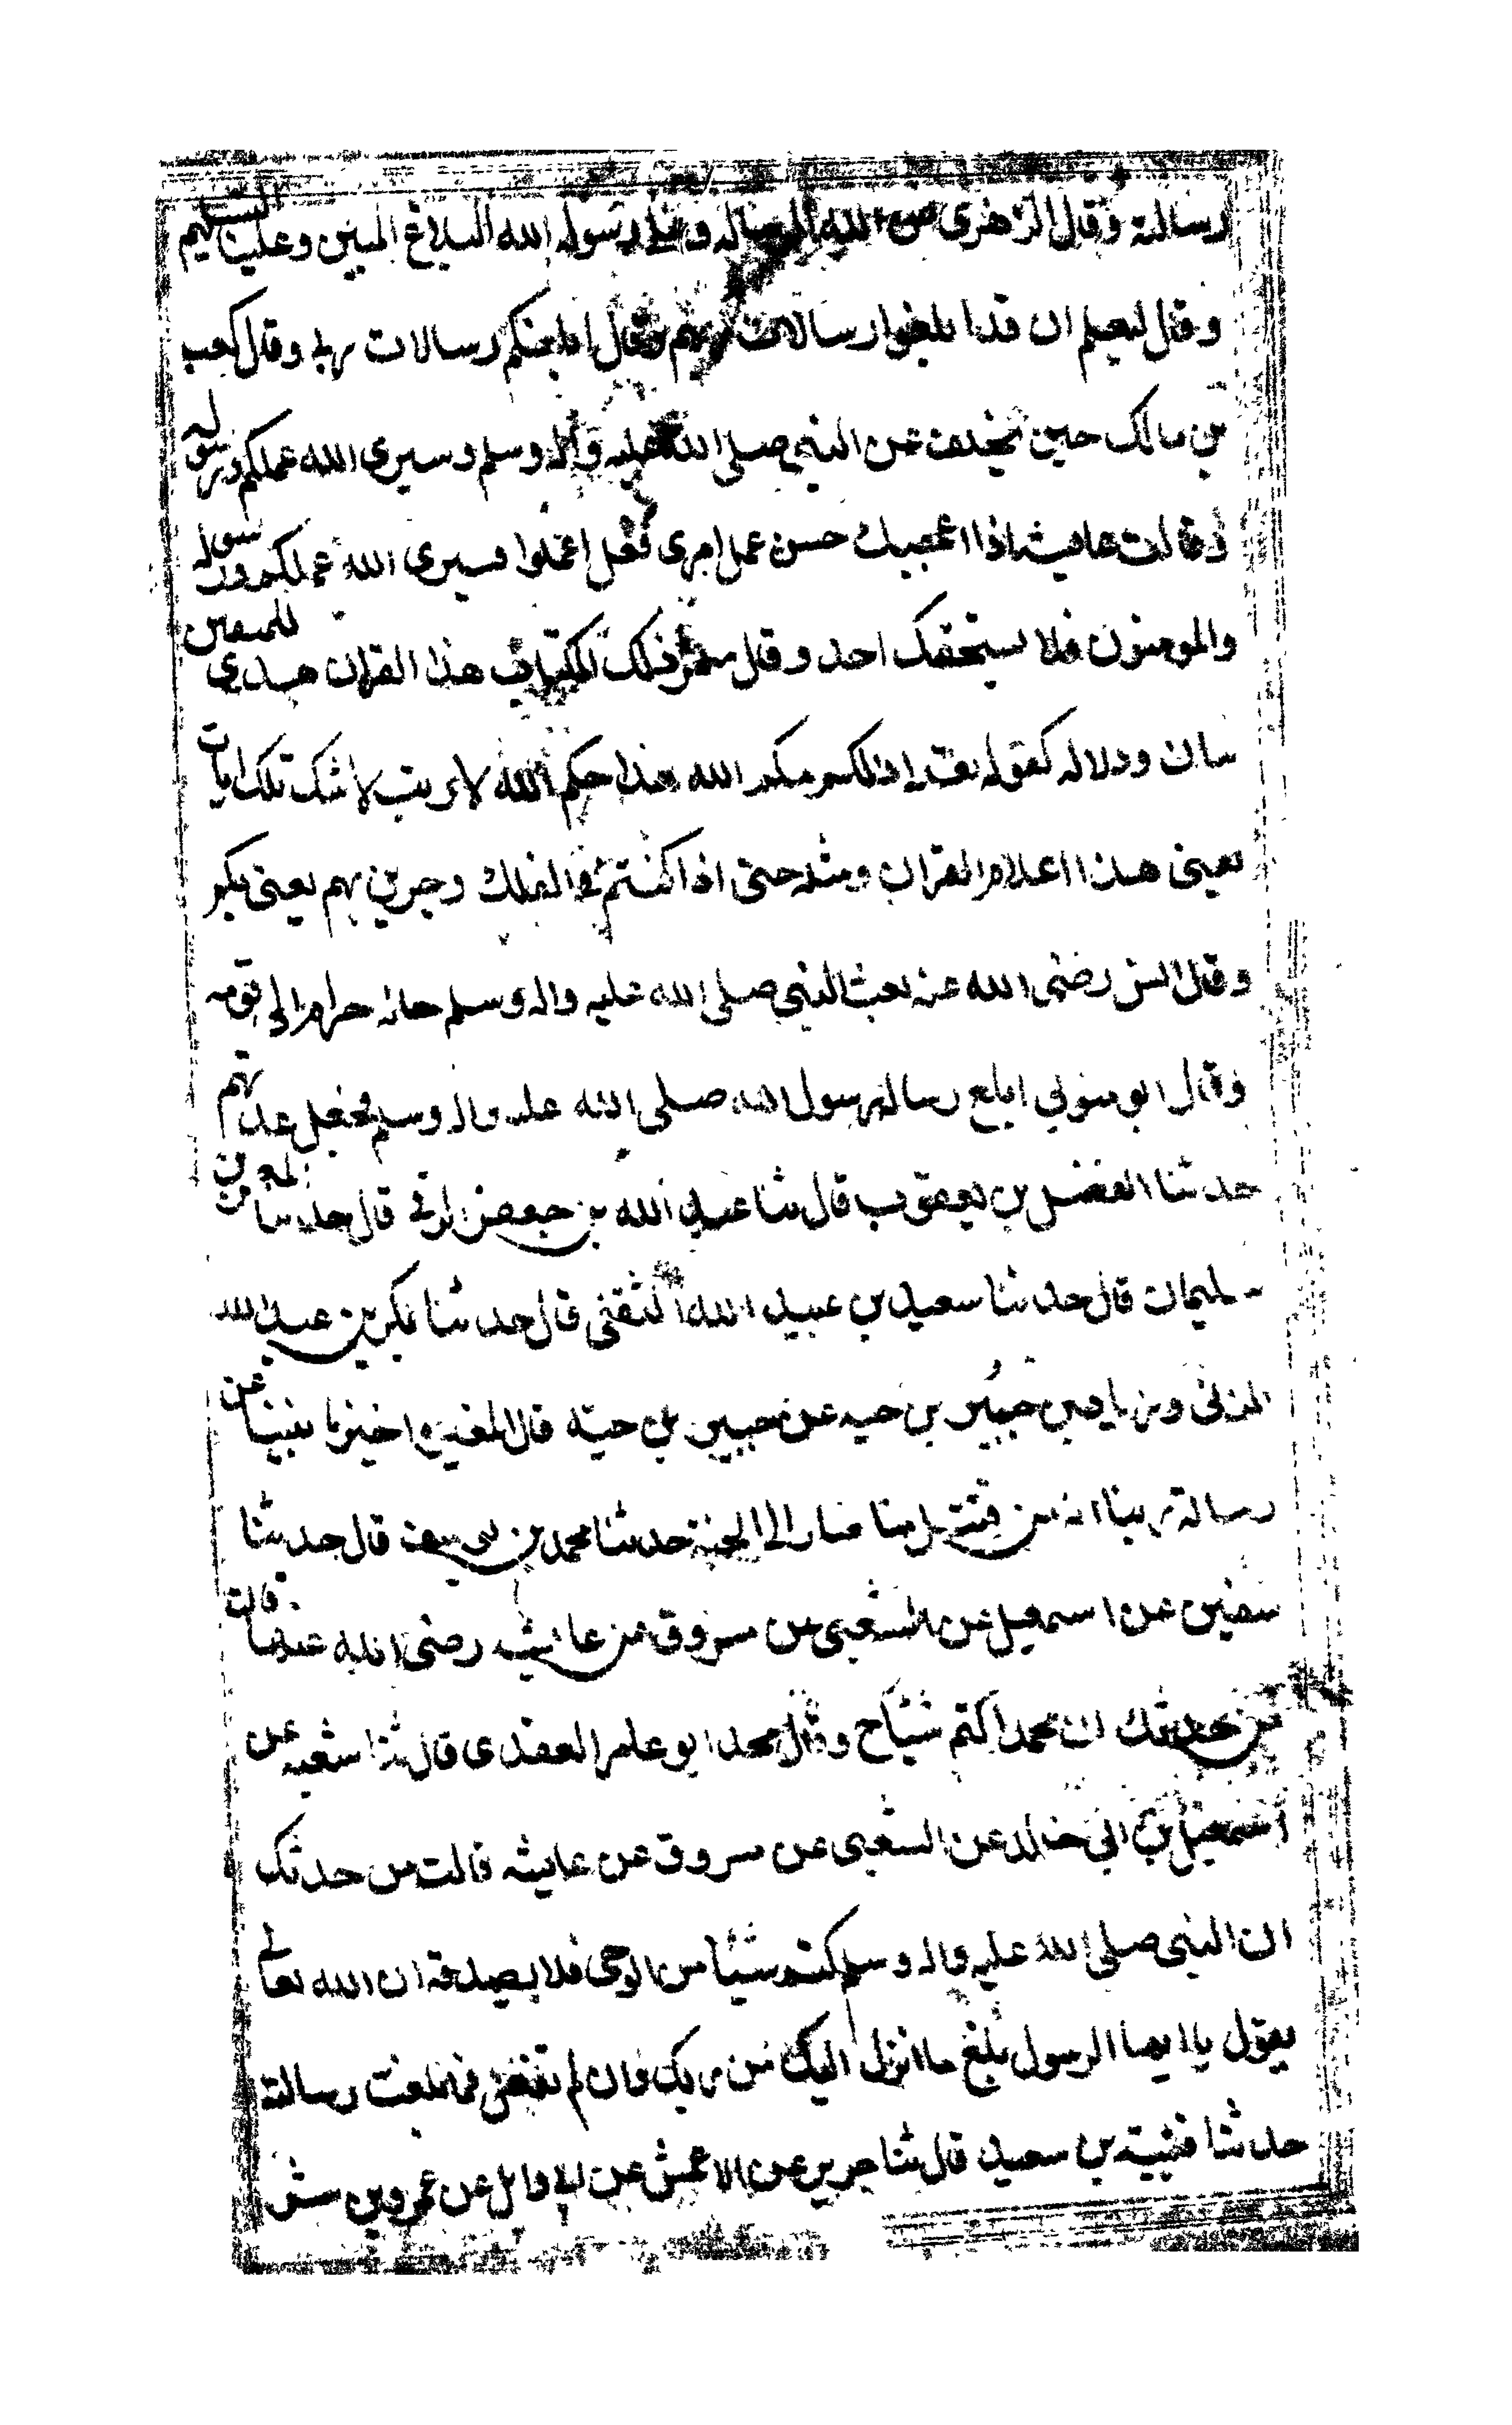 رسالته وقال الزهرى من الله الرسالة وعلى رسوله الله البلاغ المبين وعلينا التسليم
وقال ليعلم ان قد ابلغوا رسالات ربهم وقال ابلغكم رسالات ربى وقال كعب
بن مالك حين تخلف عن النبي صلى الله عليه وآله وسلم وسيرى الله عملكم ورسوله
وقالت عايشه اذا اعجبك حسن عمل امرئ فقل اعملوا فسيرى الله عملكم ورسوله
والمومنون فلا يستخفنك احد وقال معمر ذلك الكتاب هذا القران هدى للمتقين
بيان ودلاله كقوله تعالى ذلكم حكم الله هذا حكم الله لا ريب لا شك تلك ايات
يعنى هذا اعلام القران ومثله حتى اذا كنتم فى الفلك وجرين بهم يعنى بكم
وقال انس رضى الله عنه بعث النبي صلى الله عليه واله وسلم خاله حرام الى قومه
وقال اتومنونى ابلغ رسالة رسول الله صلى الله عليه واله وسلم فجعل يحدثهم
حدثنا الفضل بن يعقوب قال ثنا عبد الله بن جعفر الرقى قال حدثنا المعتمر بن
سليمان قال حدثنا سعيد بن عبيد الله الثقفى قال حدثنا بكر بن عبد الله
المزنى وزياد بن جبير بن حيه عن جبير بن حية قال المغيرة اخبرنا نبينا عن
رسالة ربنا انه من قتل منا صار الى الجنة حدثنا محمد بن يوسف قال حدثنا
سفين عن اسمعيل عن الشعبى عن مسروق عن عايشه رضى الله عنها قالت
من حدثك ان محمدا كتم شيئا ح وقال محمد ابو عامر العقدى قال ثنا شعبه عن
اسمعيل بن ابى خالد عن الشعبى عن مسروق عن عايشه قالت من حدثك
ان النبى صلى الله عليه واله وسلم كتم شيئا من الوحى فلا تصدقه ان الله تعالى
يقول يا ايها الرسول بلغ ما انزل اليك من ربك وان لم تفعل فما بلغت رسالته
حدثنا قتيبة بن سعيد قال ثنا جرير عن الاعمش عن ابى وائل عن عمرو بن